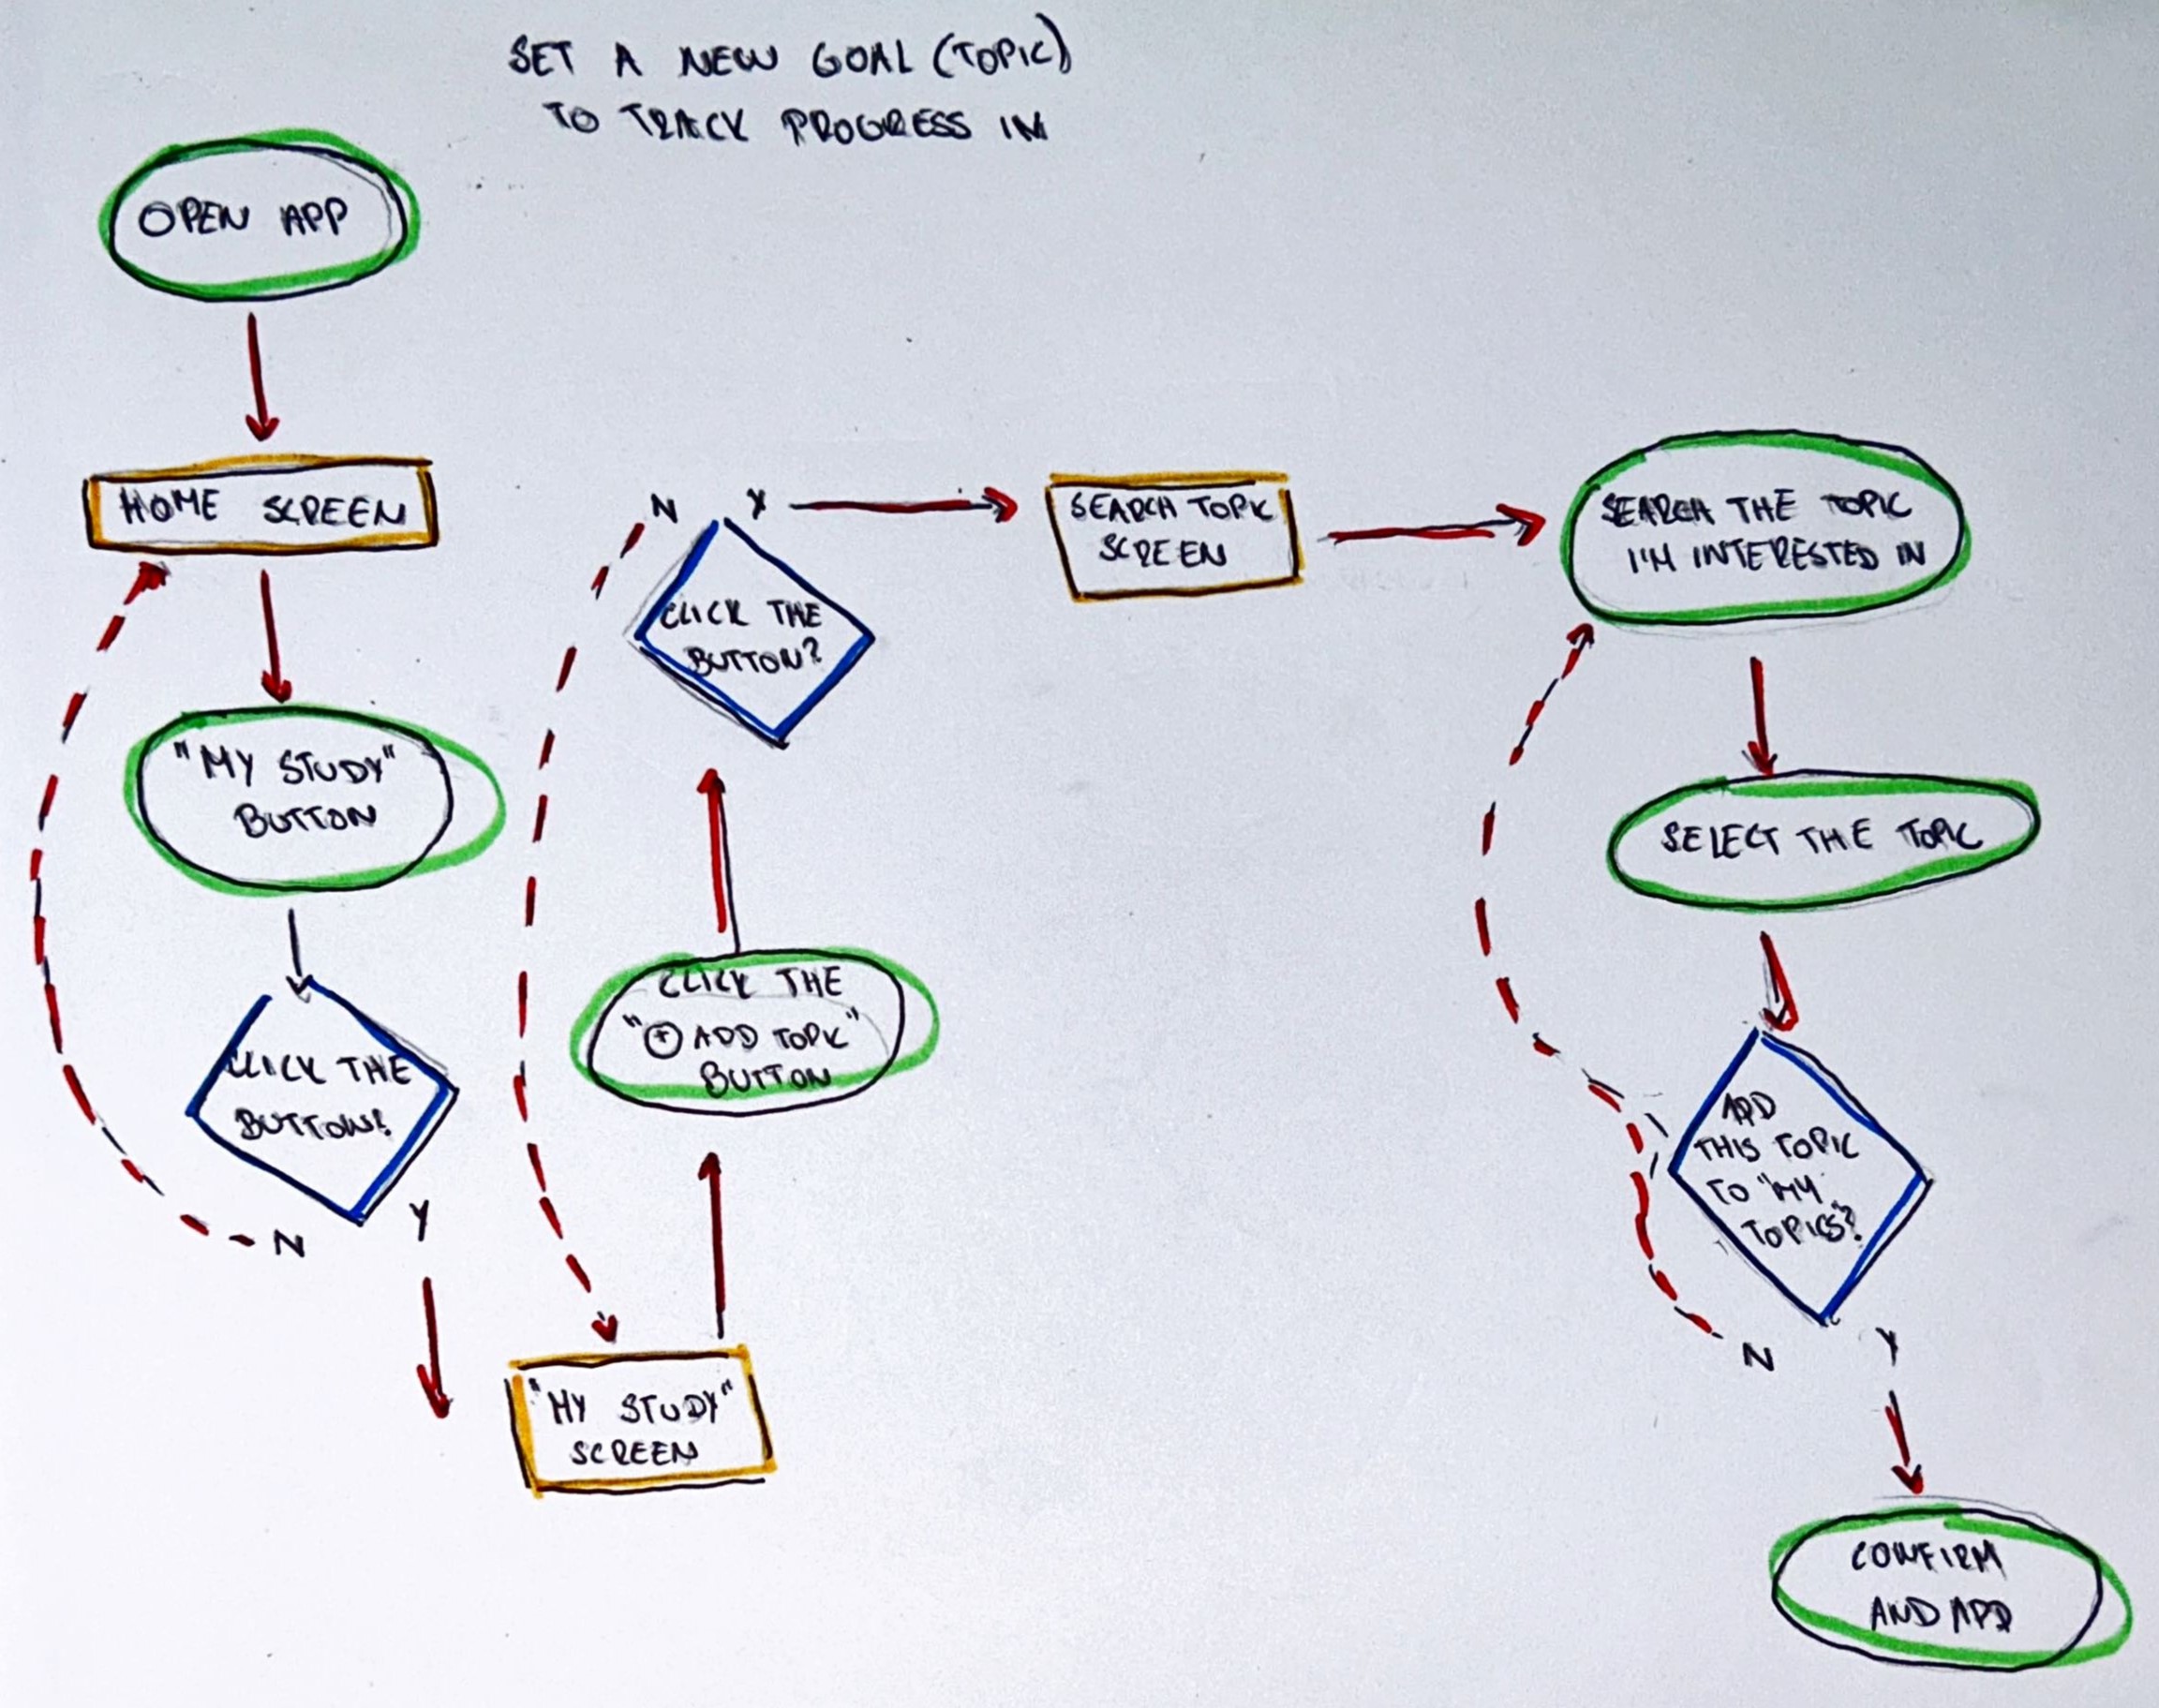 SET A NEW GOAL (TOPIC)
TO TRACK PROGRESS IN
OPEN APP
HOME SCREEN
"MY STUDY"
BUTTON
CLICK THE
BUTTON?
N
Y
"MY STUDY"
SCREEN
CLICK THE
"+ ADD TOPIC"
BUTTON
CLICK THE
BUTTON?
N
Y
SEARCH TOPIC
SCREEN
SEARCH THE TOPIC
I'M INTERESTED IN
SELECT THE TOPIC
ADD
THIS TOPIC
TO "MY
TOPICS"?
N
Y
CONFIRM
AND ADD